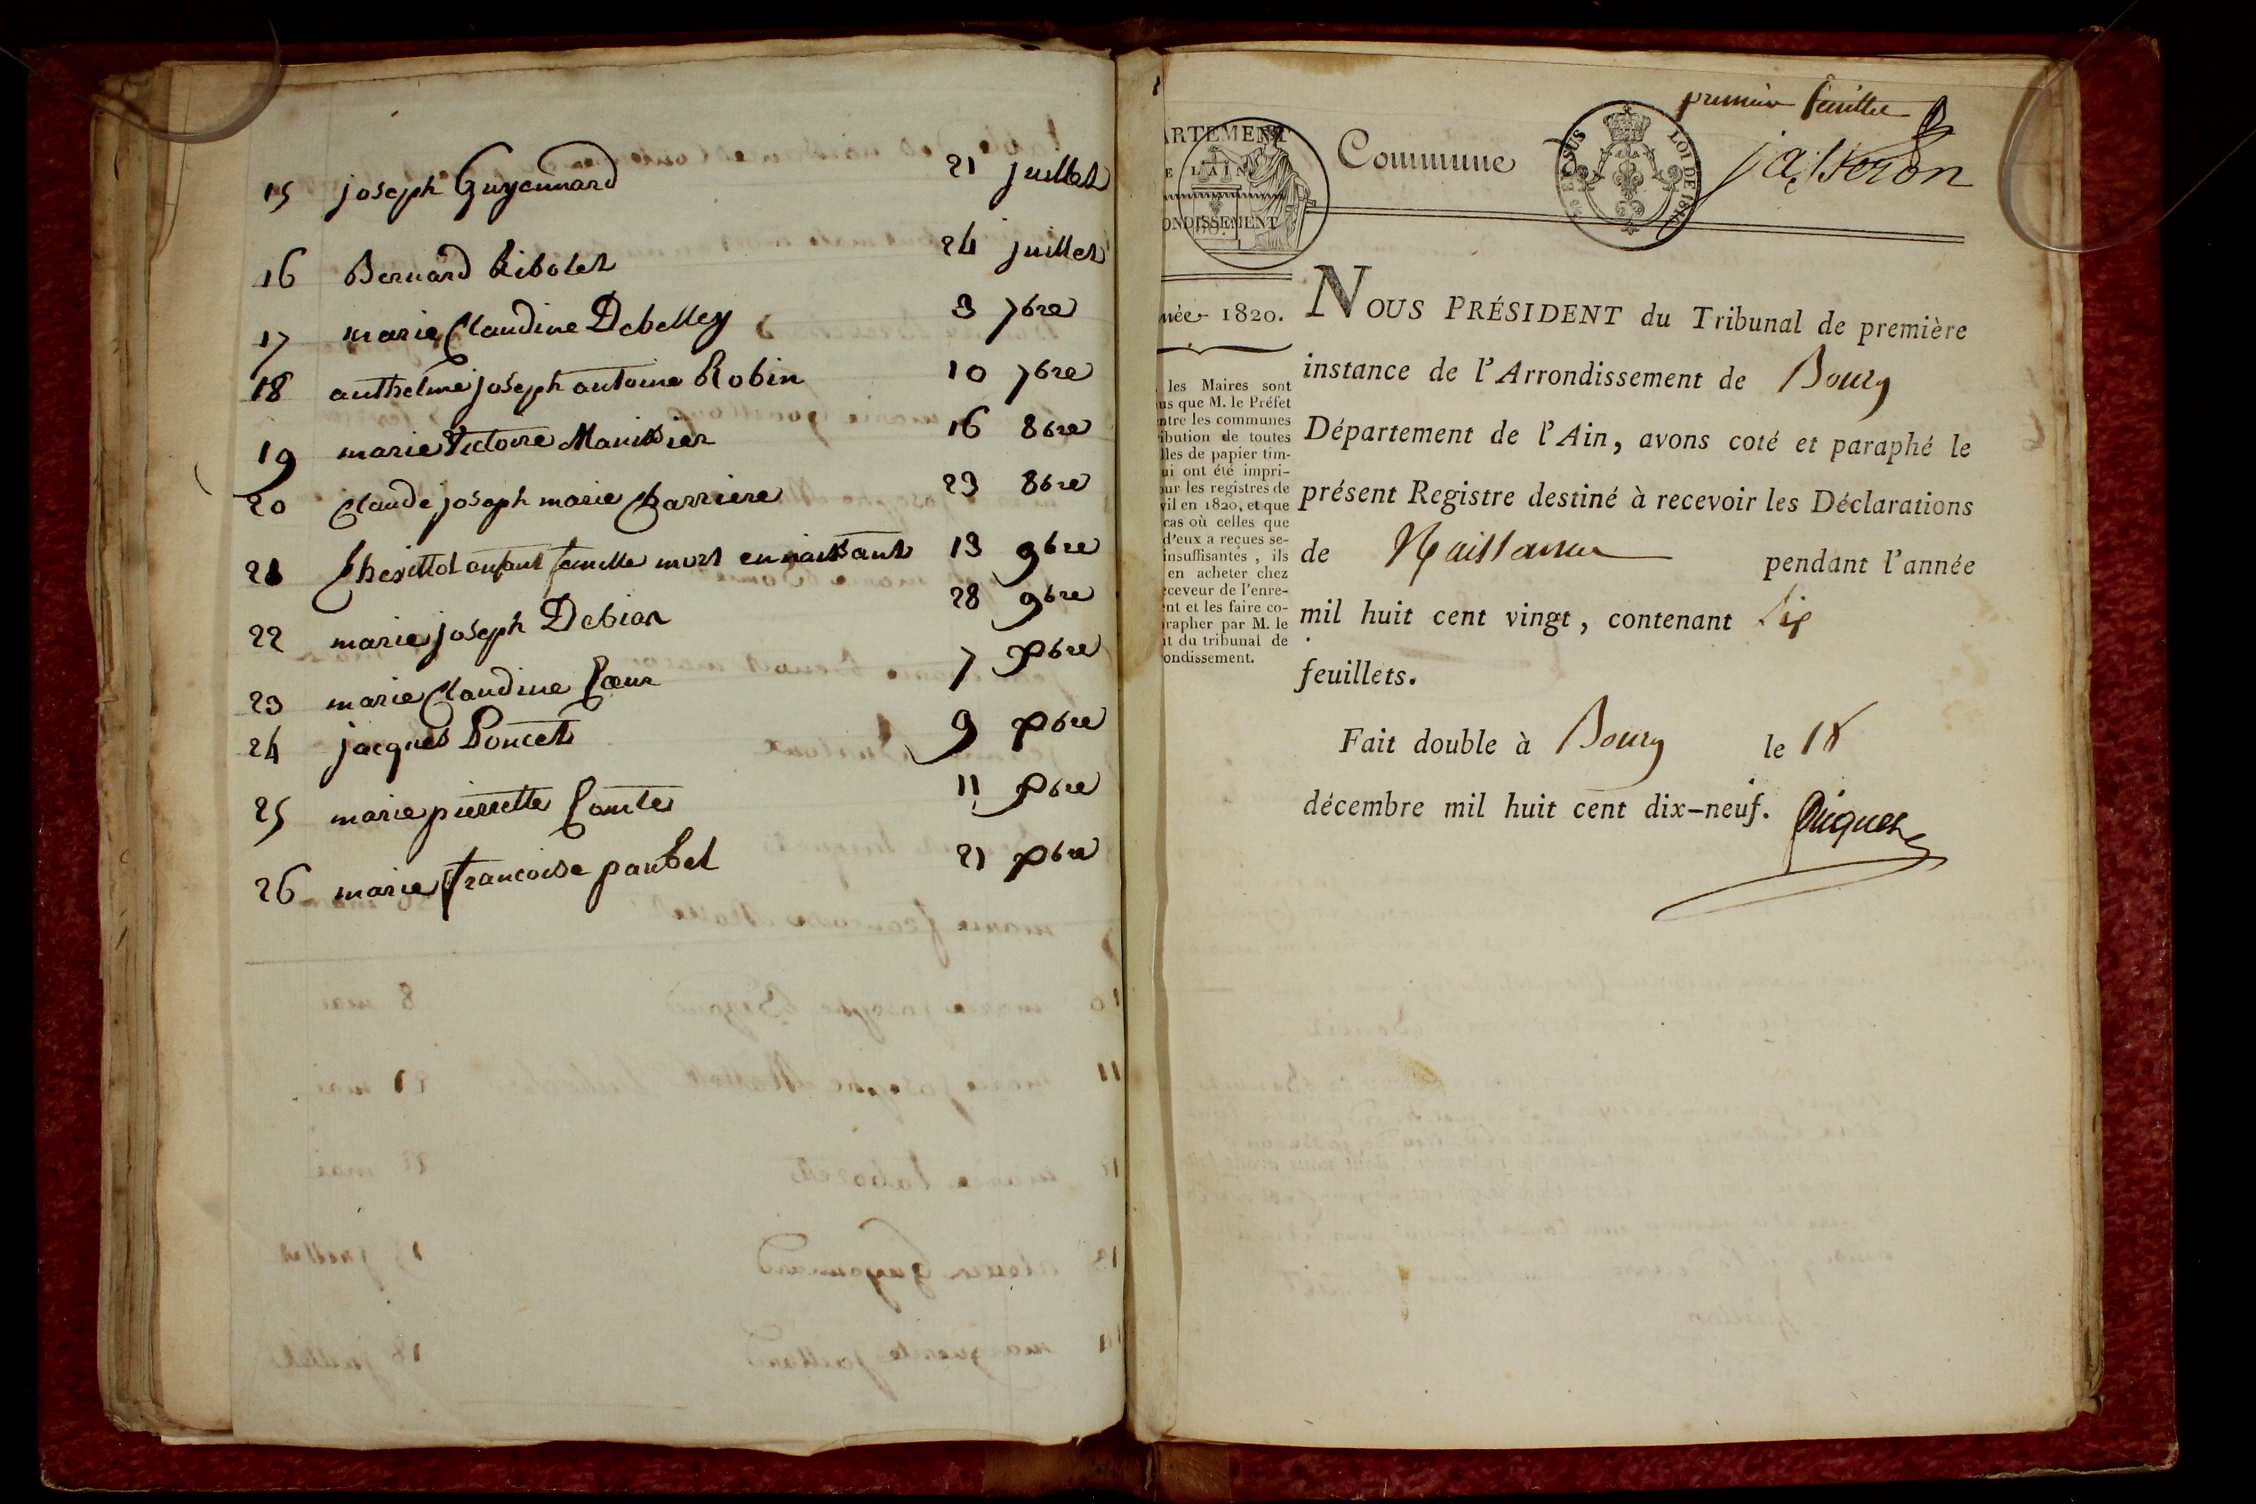 15 joseph Guyennard 21 juillet
16 Bernard Ribolet 24 juillet
17 marie Claudine Debelley 3 7bre
18 anthelme joseph antoine Robin 10 7bre
19 marie Victoire Manissier 16 8bre
20 Claude joseph marie Charriere 23 8bre
21 enfant femelle mort en naissant 13 9bre
22 marie joseph Debion 28 9bre
23 marie Claudine Cœur 7 Xbre
24 jacques Poncet 9 Xbre
25 marie pierrette Comte 11 Xbre
26 marie francoise paubel 21 Xbre
premier feuillet
ARTEMENT
E L'AIN
ONDISSEMENT
Commune
LOI DE 1816
jasseron
née 1820.
les Maires sont
us que M. le Préfet
ntre les communes
ibution de toutes
lles de papier tim-
ui ont été impri-
our les registres de
vil en 1820, et que
cas où celles que
d'eux a reçues se-
insuffisantes, ils
en acheter chez
eceveur de l'enre-
nt et les faire co-
rapher par M. le
t du tribunal de
ondissement.
NOUS PRÉSIDENT du Tribunal de première
instance de l'Arrondissement de Bourg
Département de l'Ain, avons coté et paraphé le
présent Registre destiné à recevoir les Déclarations
de Naissance pendant l'année
mil huit cent vingt, contenant Six
feuillets.
Fait double à Bourg le 18
décembre mil huit cent dix-neuf.
Piquet